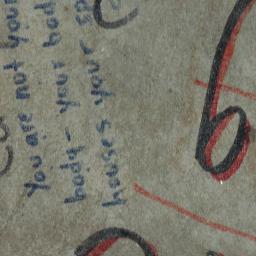 You are not your
body - your bod
houses your so